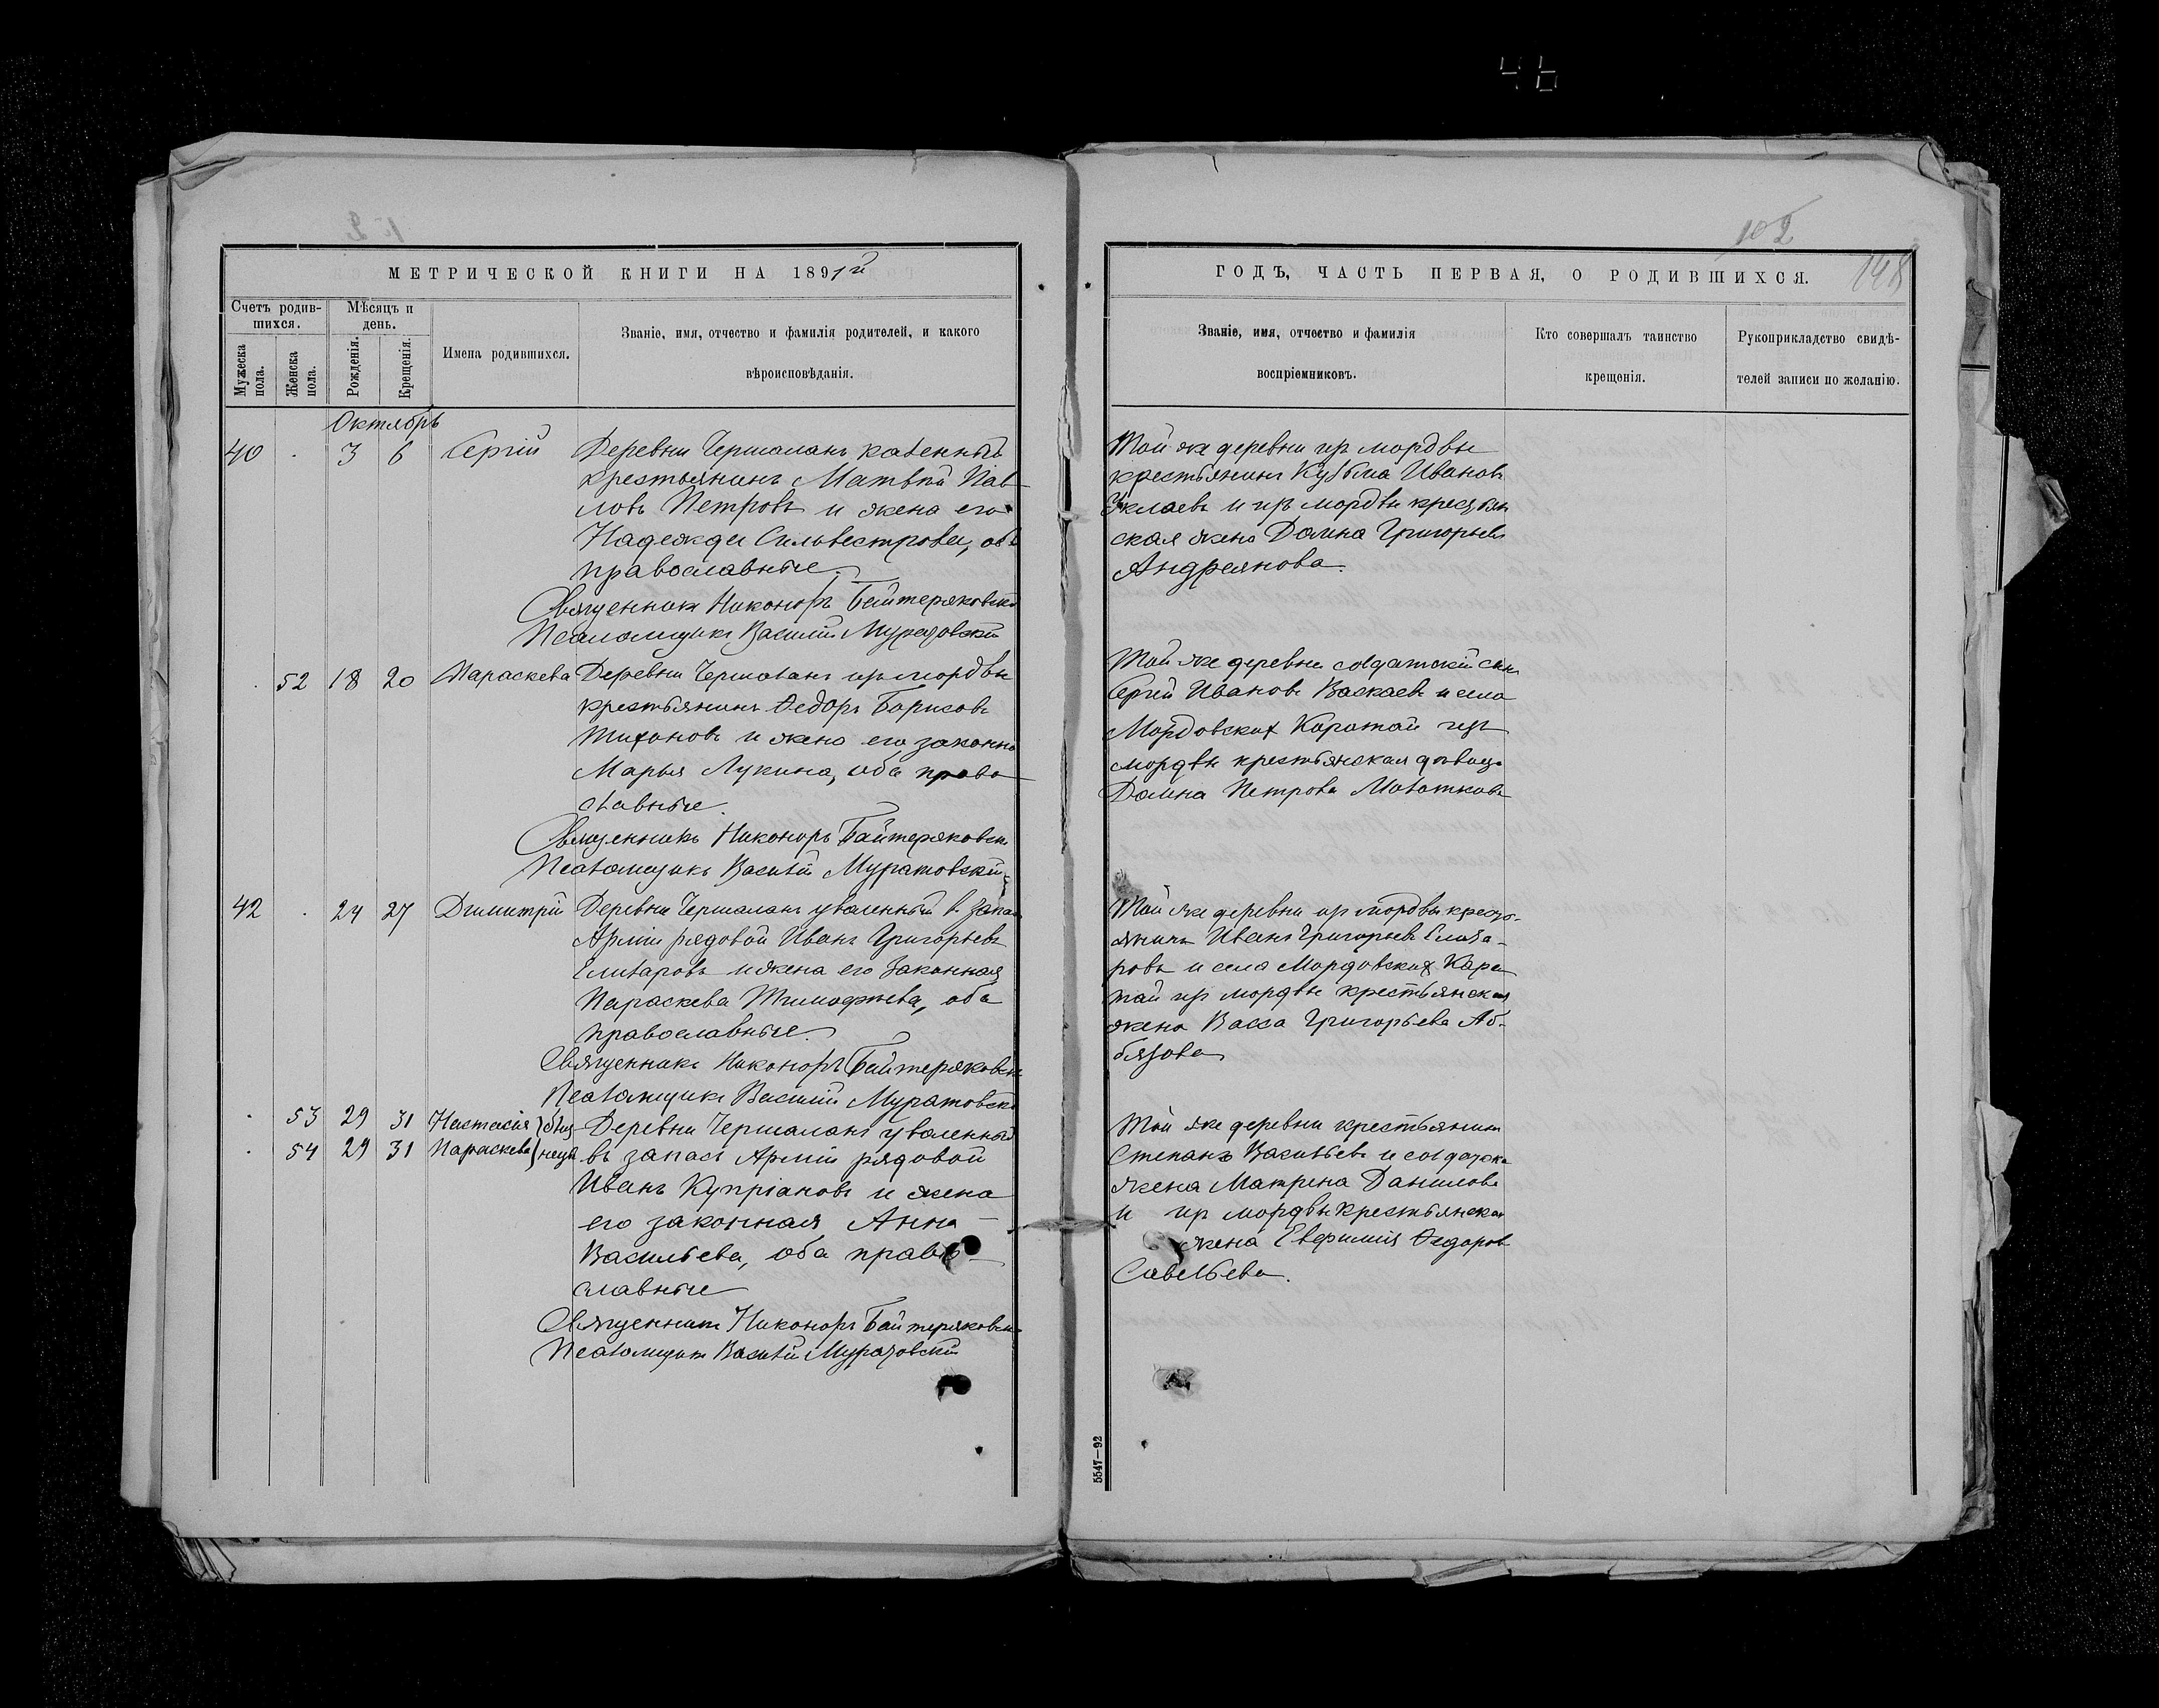 46
102
148
МЕТРИЧЕСКОЙ КНИГИ НА 1891й
Счетъ родив-
шихся.
Мужеска
пола.
Женска
пола.
Мѣсяцъ и
день.
Рожденія.
Крещенія.
Имена родившихся.
Званіе, имя, отчество и фамилія родителей, и какого
вѣроисповѣданія.
Октябрь
40 . 3 6 Сергій Деревни казенный
крестьянинъ Матвѣй Пав
ловъ Петровъ и жена его
Надежда Сильвестрова, оба
православные.
Священникъ Никоноръ Байтеряковскій
Псаломщикъ Василій Муратовскій
. 52 18 20 Параскева Деревни изъ мордвы
крестьянинъ Ѳедоръ Борисовъ
Тихоновъ и жена его законна
Марья Лукина, оба право
славные.
Священникъ Никоноръ Байтеряковск
Псаломщикъ Василій Муратовскій
42 . 24 27 Димитрій Деревни уволенный в запас
Арміи рядовой Иванъ Григорьевъ
Елизаровъ и жена его законная
Параскева Тимофѣева, оба
православные.
Священникъ Никоноръ Байтеряковск
Псаломщикъ Василій Муратовскі
. 53 29 31 Настасія } близ- Деревни уволенный
. 54 29 31 Параскева } нецы въ запасъ Арміи рядовой
Иванъ Купріановъ и жена
его законная Анна
Васильева, оба право
славные
Священникъ Никоноръ Байтеряковск
Псаломщикъ Василій Муратовскій
ГОДЪ, ЧАСТЬ ПЕРВАЯ, О РОДИВШИХСЯ.
Званіе, имя, отчество и фамилія
воспріемниковъ.
Кто совершалъ таинство
крещенія.
Рукоприкладство свидѣ-
телей записи по желанію.
Той же деревни изъ мордвы
крестьянинъ Кузьма Ивановъ
и изъ мордвы крестьян
ская жена Домна Григорьева
Андреянова.
Той же деревни солдатскій сынъ
Сергѣй Ивановъ Васкаевъ и села
Мордовскихъ Каратай изъ
мордвы крестьянская дѣвица
Домна Петрова
Той же деревни изъ мордвы кресть-
янинъ Иванъ Григорьевъ Елиза-
ровъ и села Мордовскихъ Кара
тай изъ мордвы крестьянская
жена Васса Григорьева Аб-
бязова
Той же деревни крестьянинъ
Степанъ Васильевъ и солдатска
жена Матрена Данилова
и изъ мордвы крестьянская
жена Евфимія Ѳедоров
Савельева.
5547—92